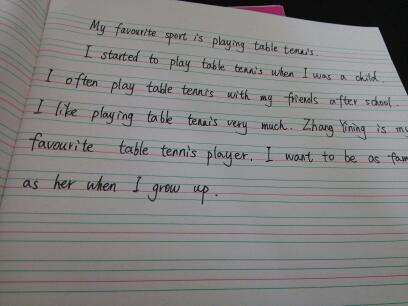 My favourite sport is playing table tennis
I started to play table tennis when I was a child.
I often play table tennis with my friends after school.
I like playing table tennis very much. Zhang Yining is
favourite table tennis player. I want to be as
as her when I grow up.